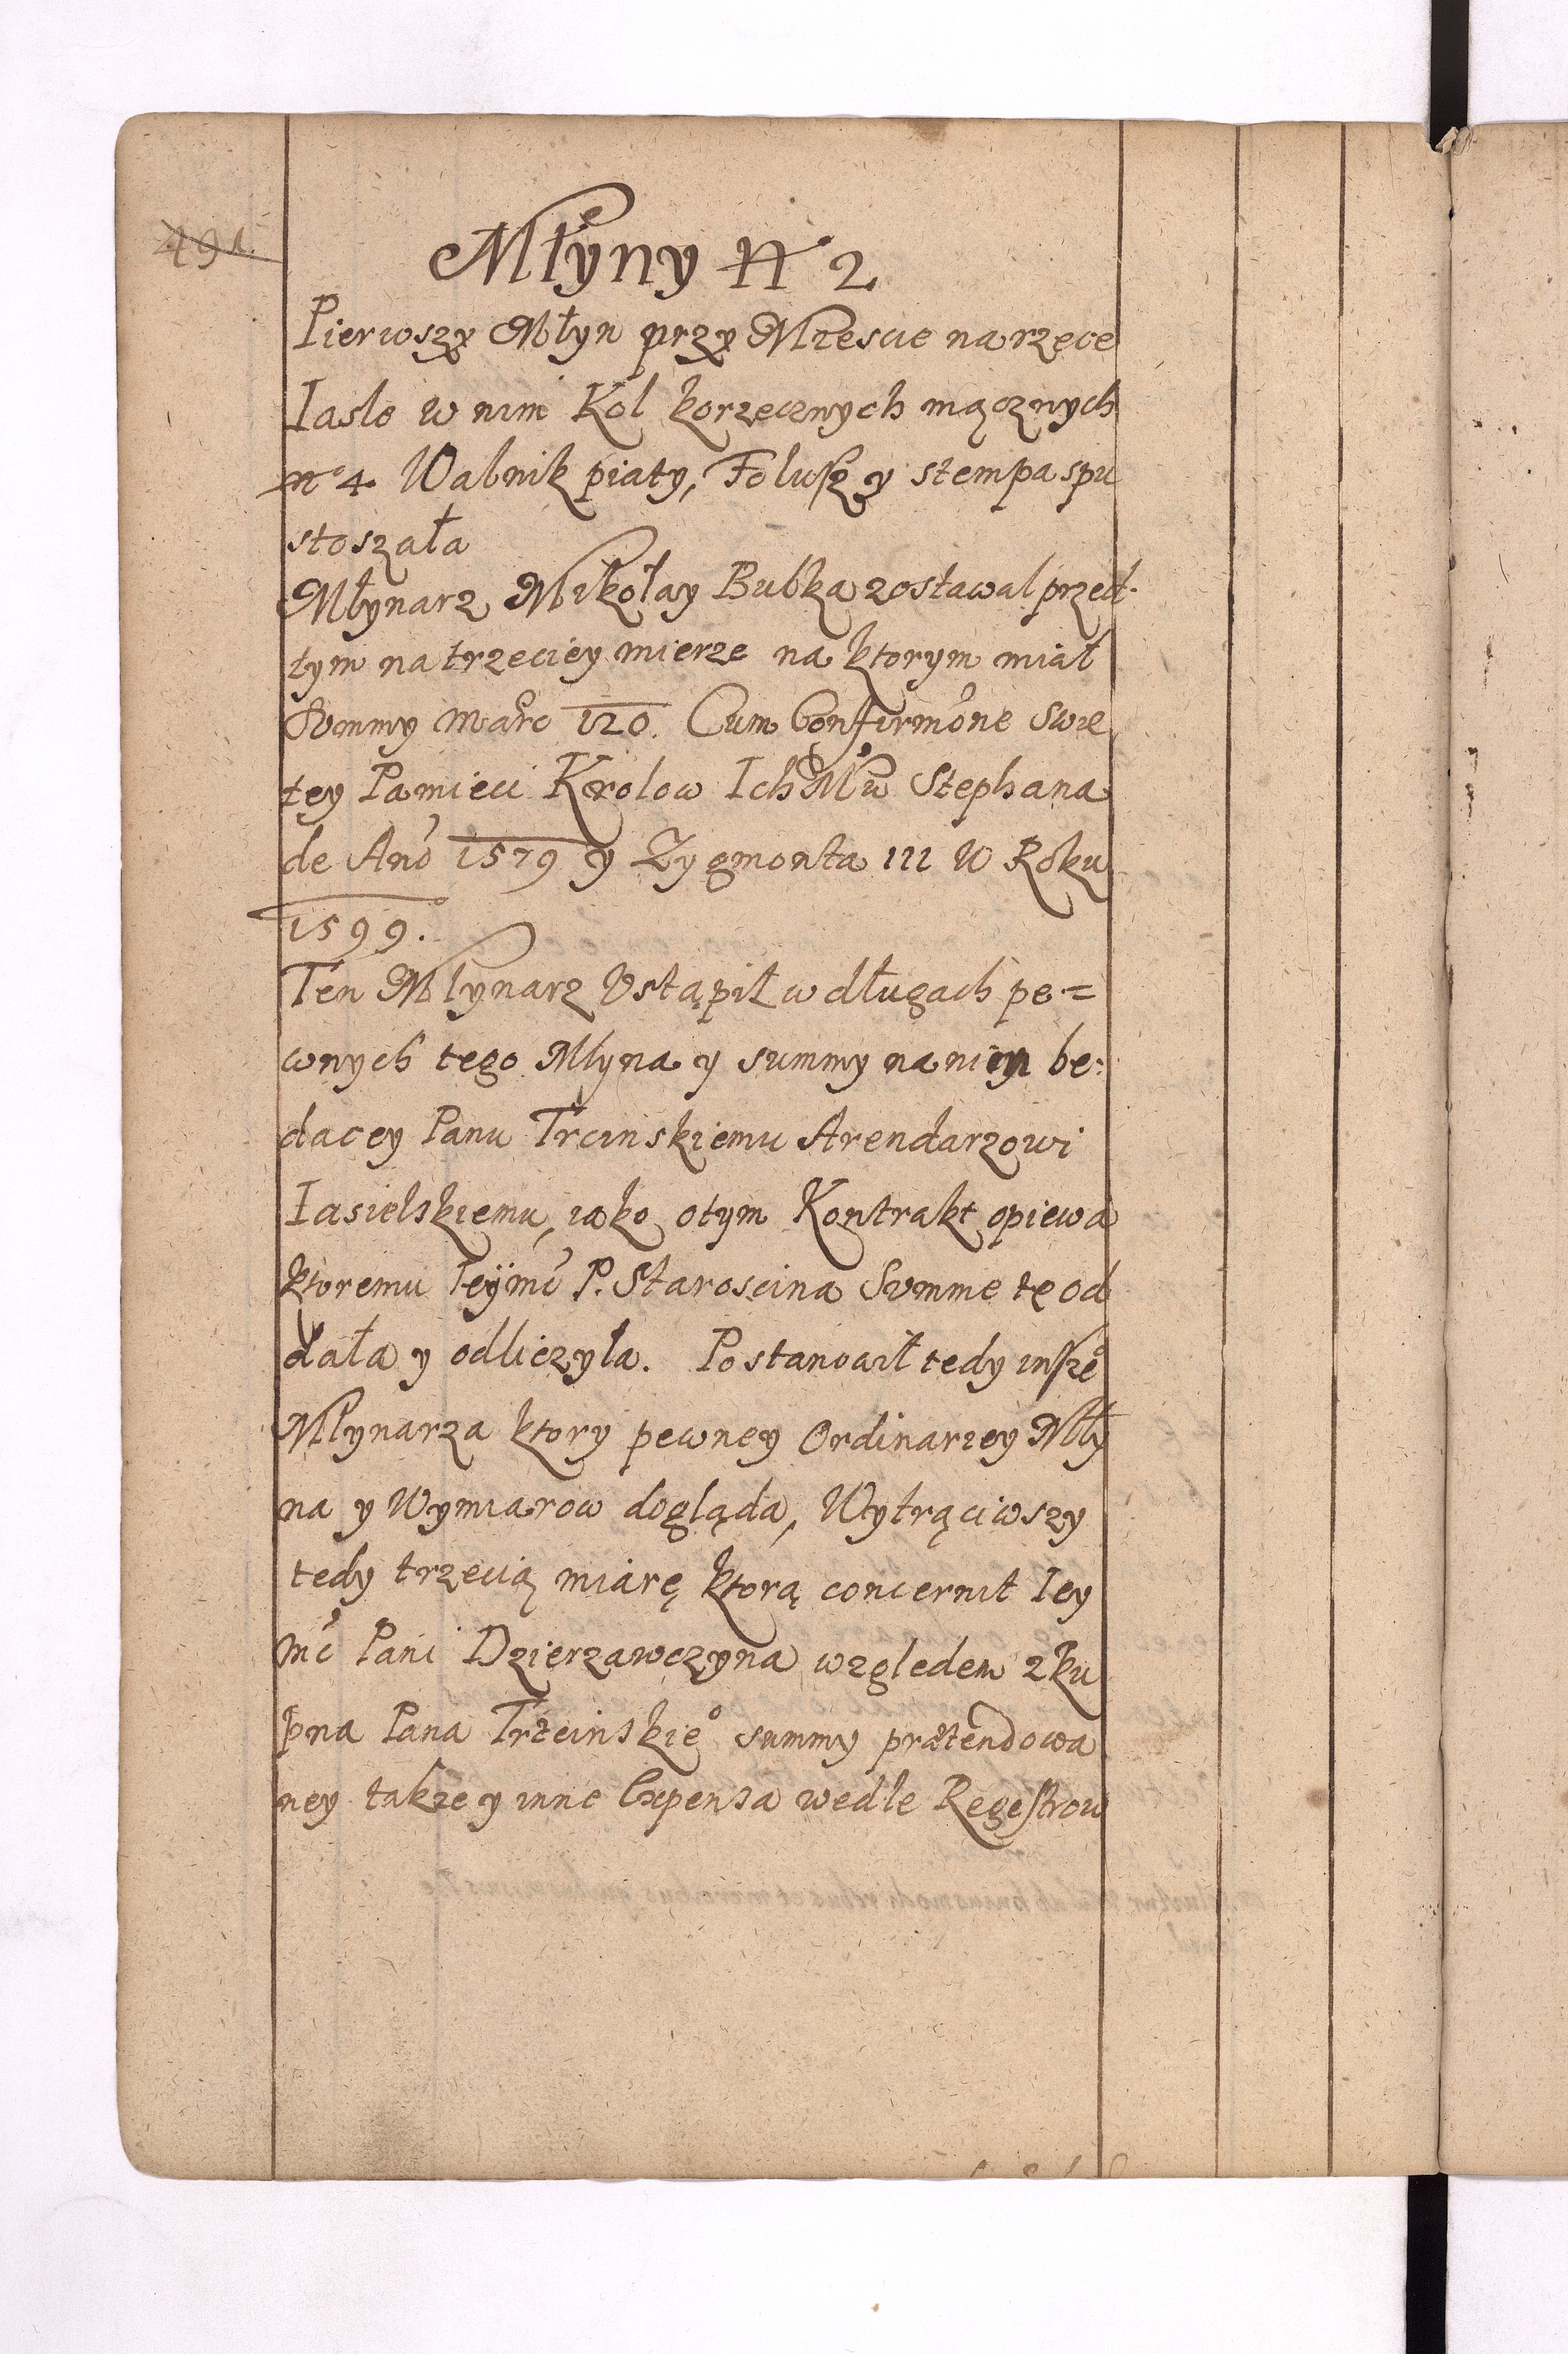 491.
Młyny N 2
Pierwszy Młyn przy Miescie na rzęce
Iaslo w nim Kol korzecznych mącznych
nº 4 Walnik piaty, Folusz y stempa spu
stoszała
Młynarz Mikołay Bubka zostawal przed
tym na trzeciey mierze na ktorym miał
Summy març 120. Cum Confirmõne Swie
tey Pamieci Krolow Ich Mꝯw Stephana
de Anõ 1579 y Zygmonta III W Roku
1599.
Ten Młynarz Vstąpił w długach pe=
wnych tego Młyna y summy na nim be:
dacey Panu Trcinskiemu Arendarzowi
Iasielskiemu, iako o tym Kontrakt opiewa
ktoremu Ieÿmć P. Staroscina Summe tę od
dała y odliczyła. Postanowił tedy inszeº
Młynarza ktory pewney Ordinariey Mły
na y Wymiarow dogląda, Wytrąciwszy
tedy trzecią miarę ktorą concernit Iey
mć Pani Dzierzawczyna względem zku
pna Pana Trzcinskieº summy prætendowa
ney takze y inne Expensa wedle Regestrow